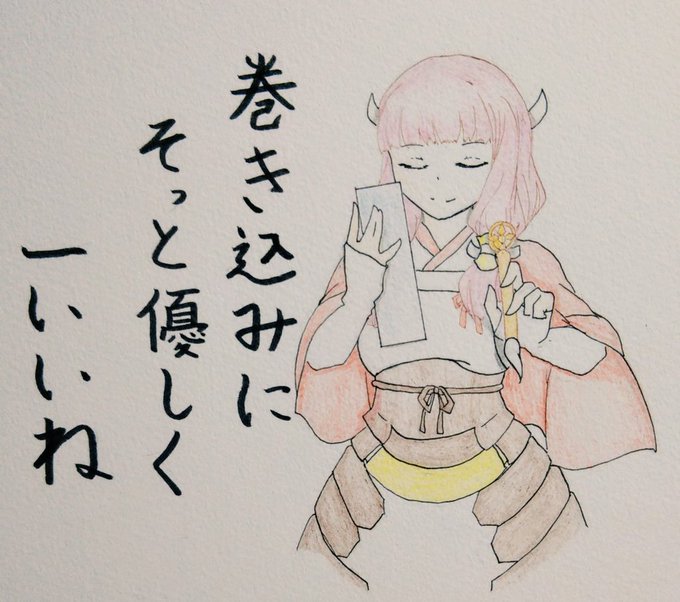 巻き込みに
そっと優しく
一いいね